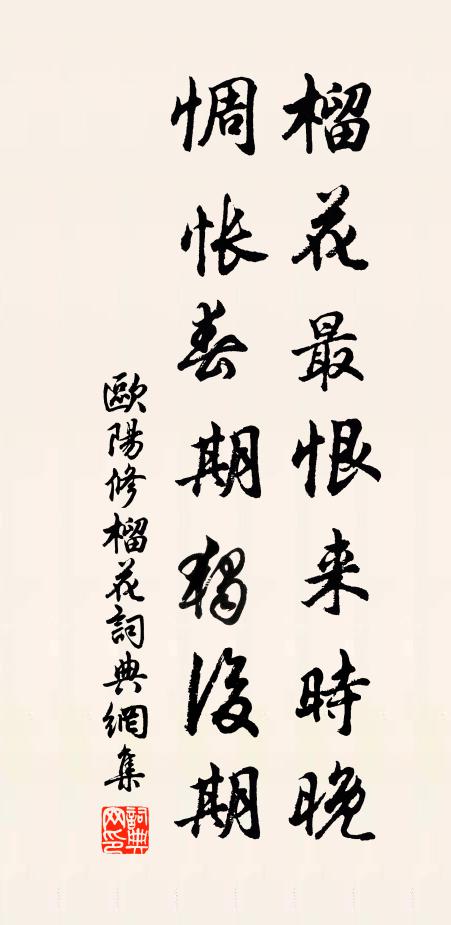 榴花最恨来時晚
惆怅春期獨後期
歐陽修榴花詞典網集
詞典網印